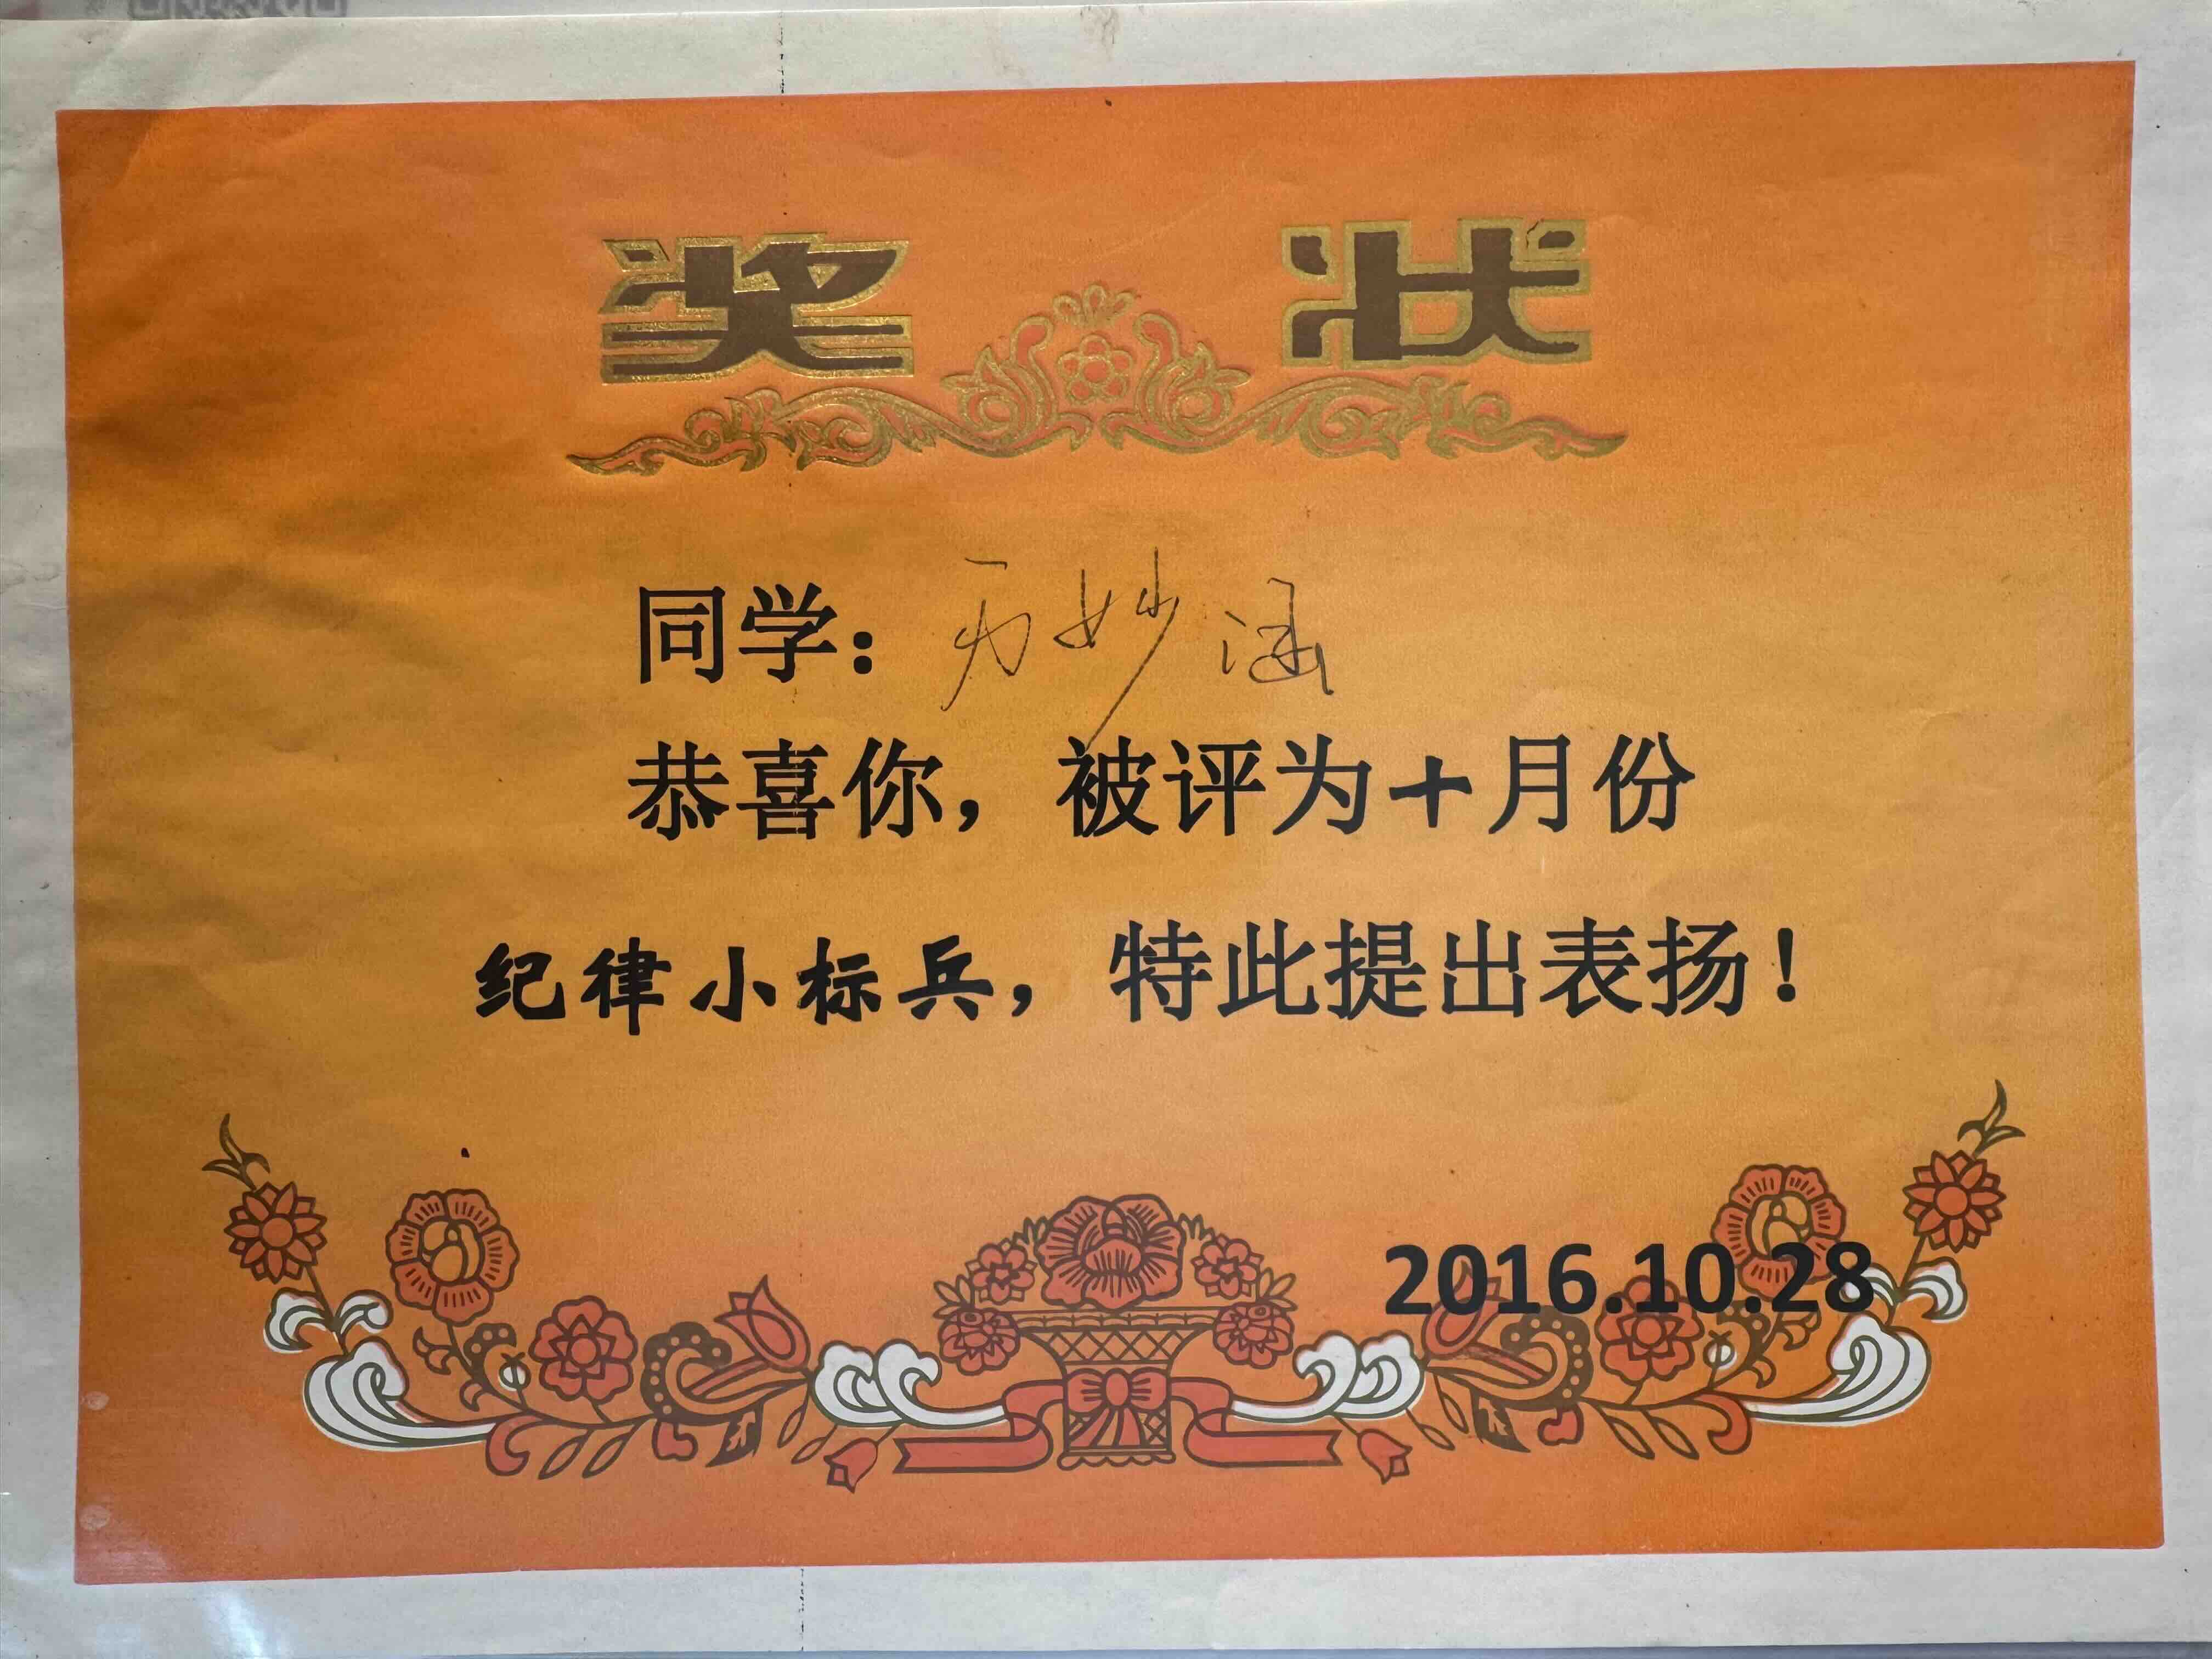 奖 状
同学：万妙涵
恭喜你，被评为十月份
纪律小标兵，特此提出表扬！
2016.10.28